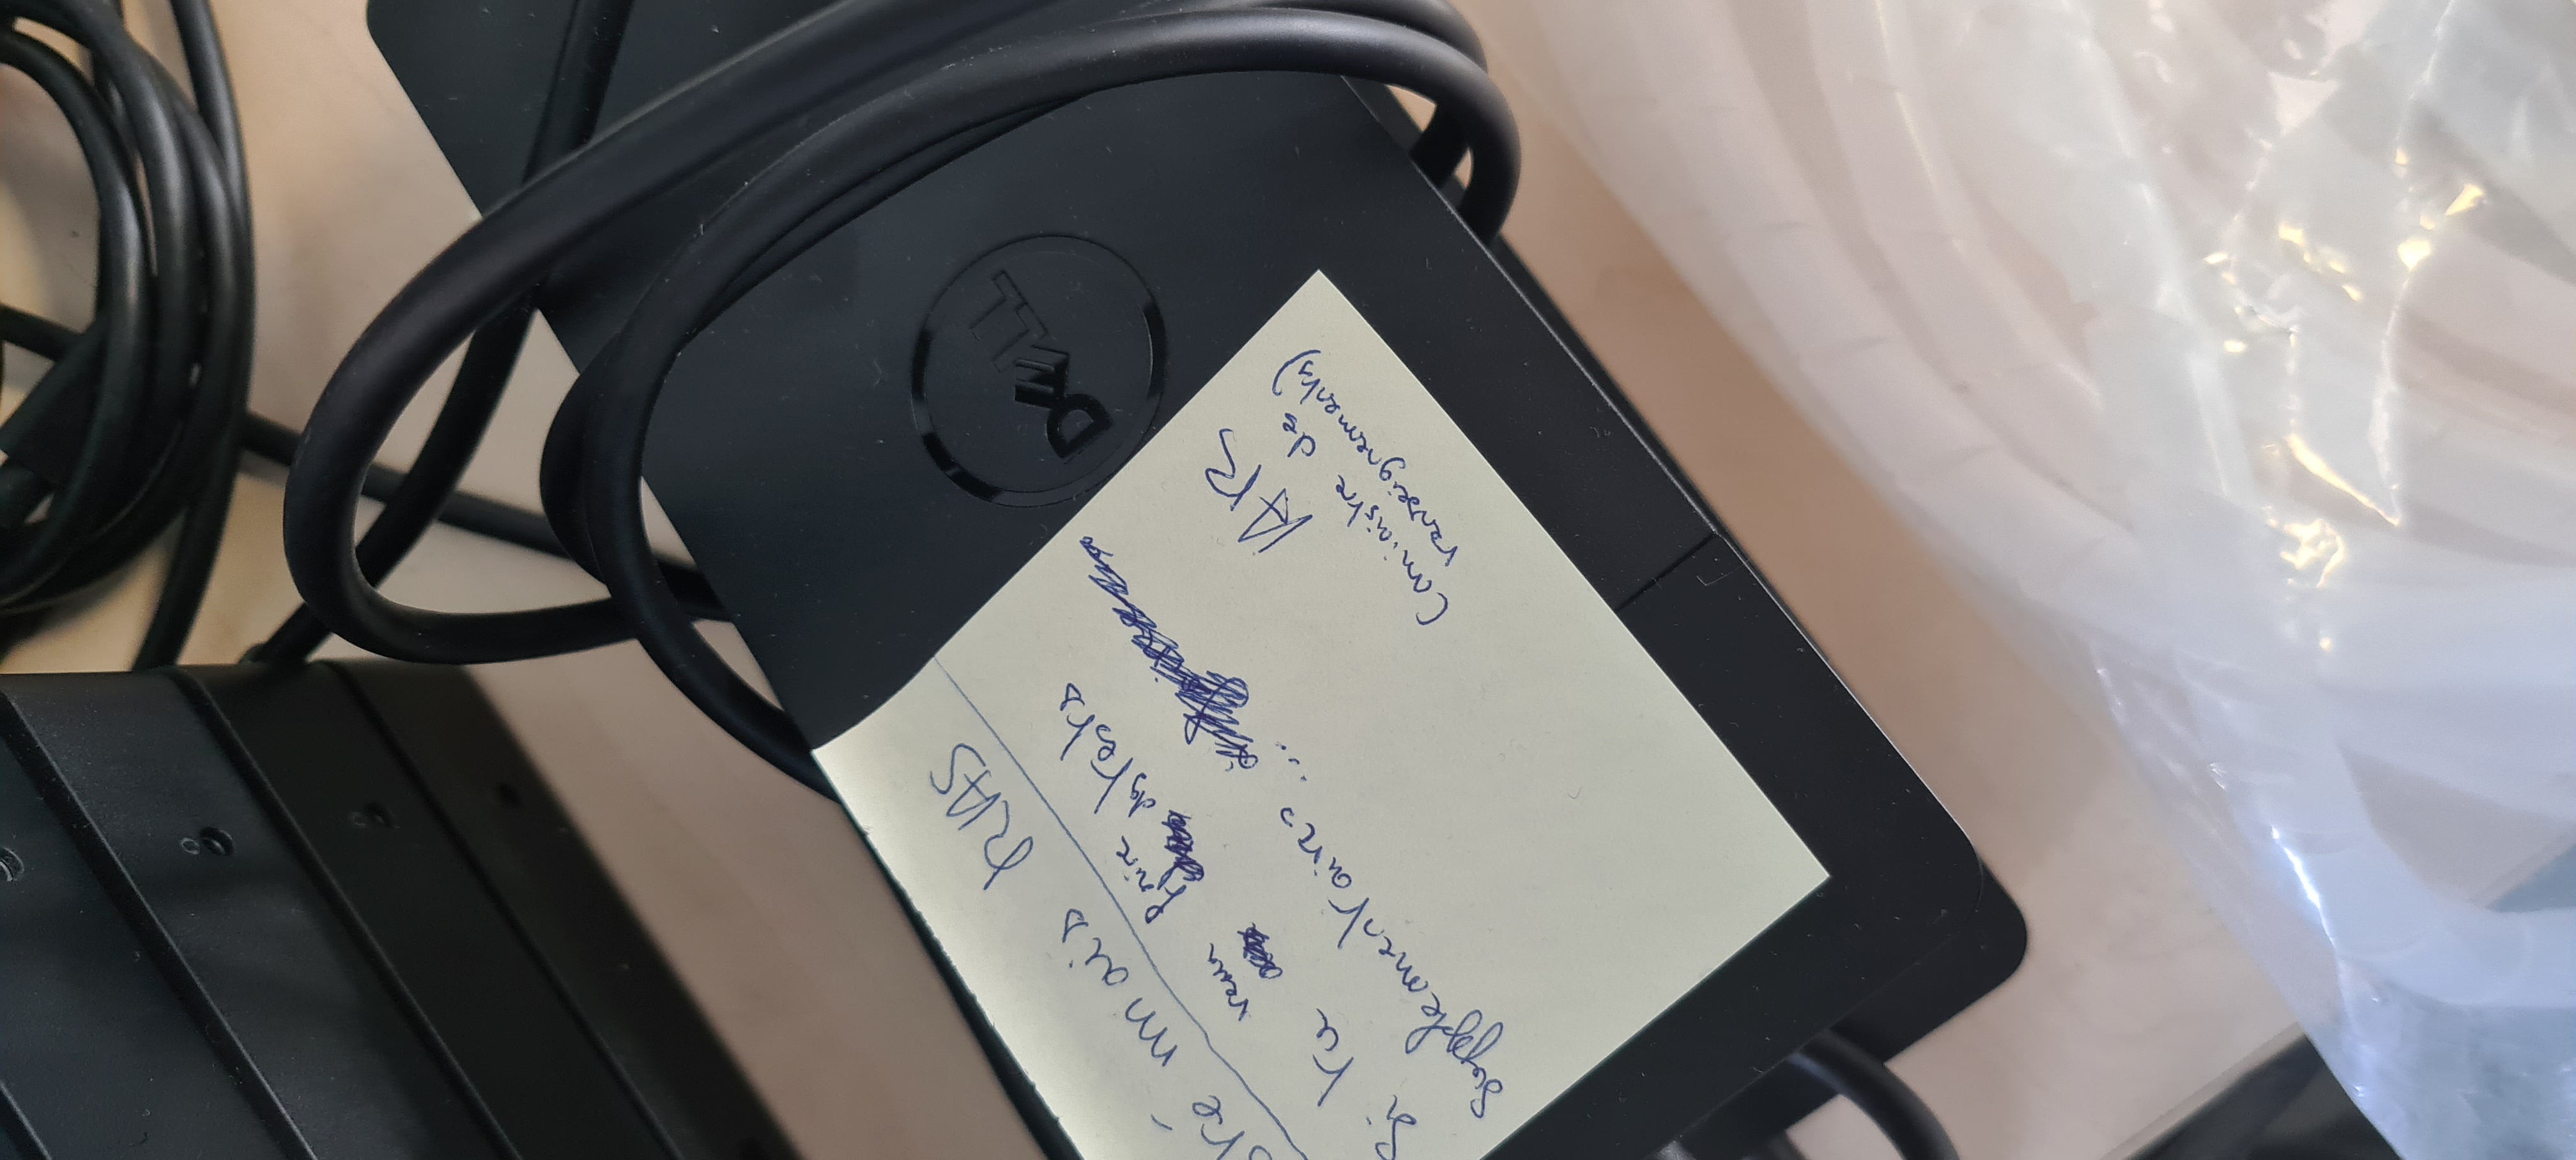 DELL
mais RAS
Si tu veux faire ds tests
supplementaires ...
AR
(ministre des
renseignements)